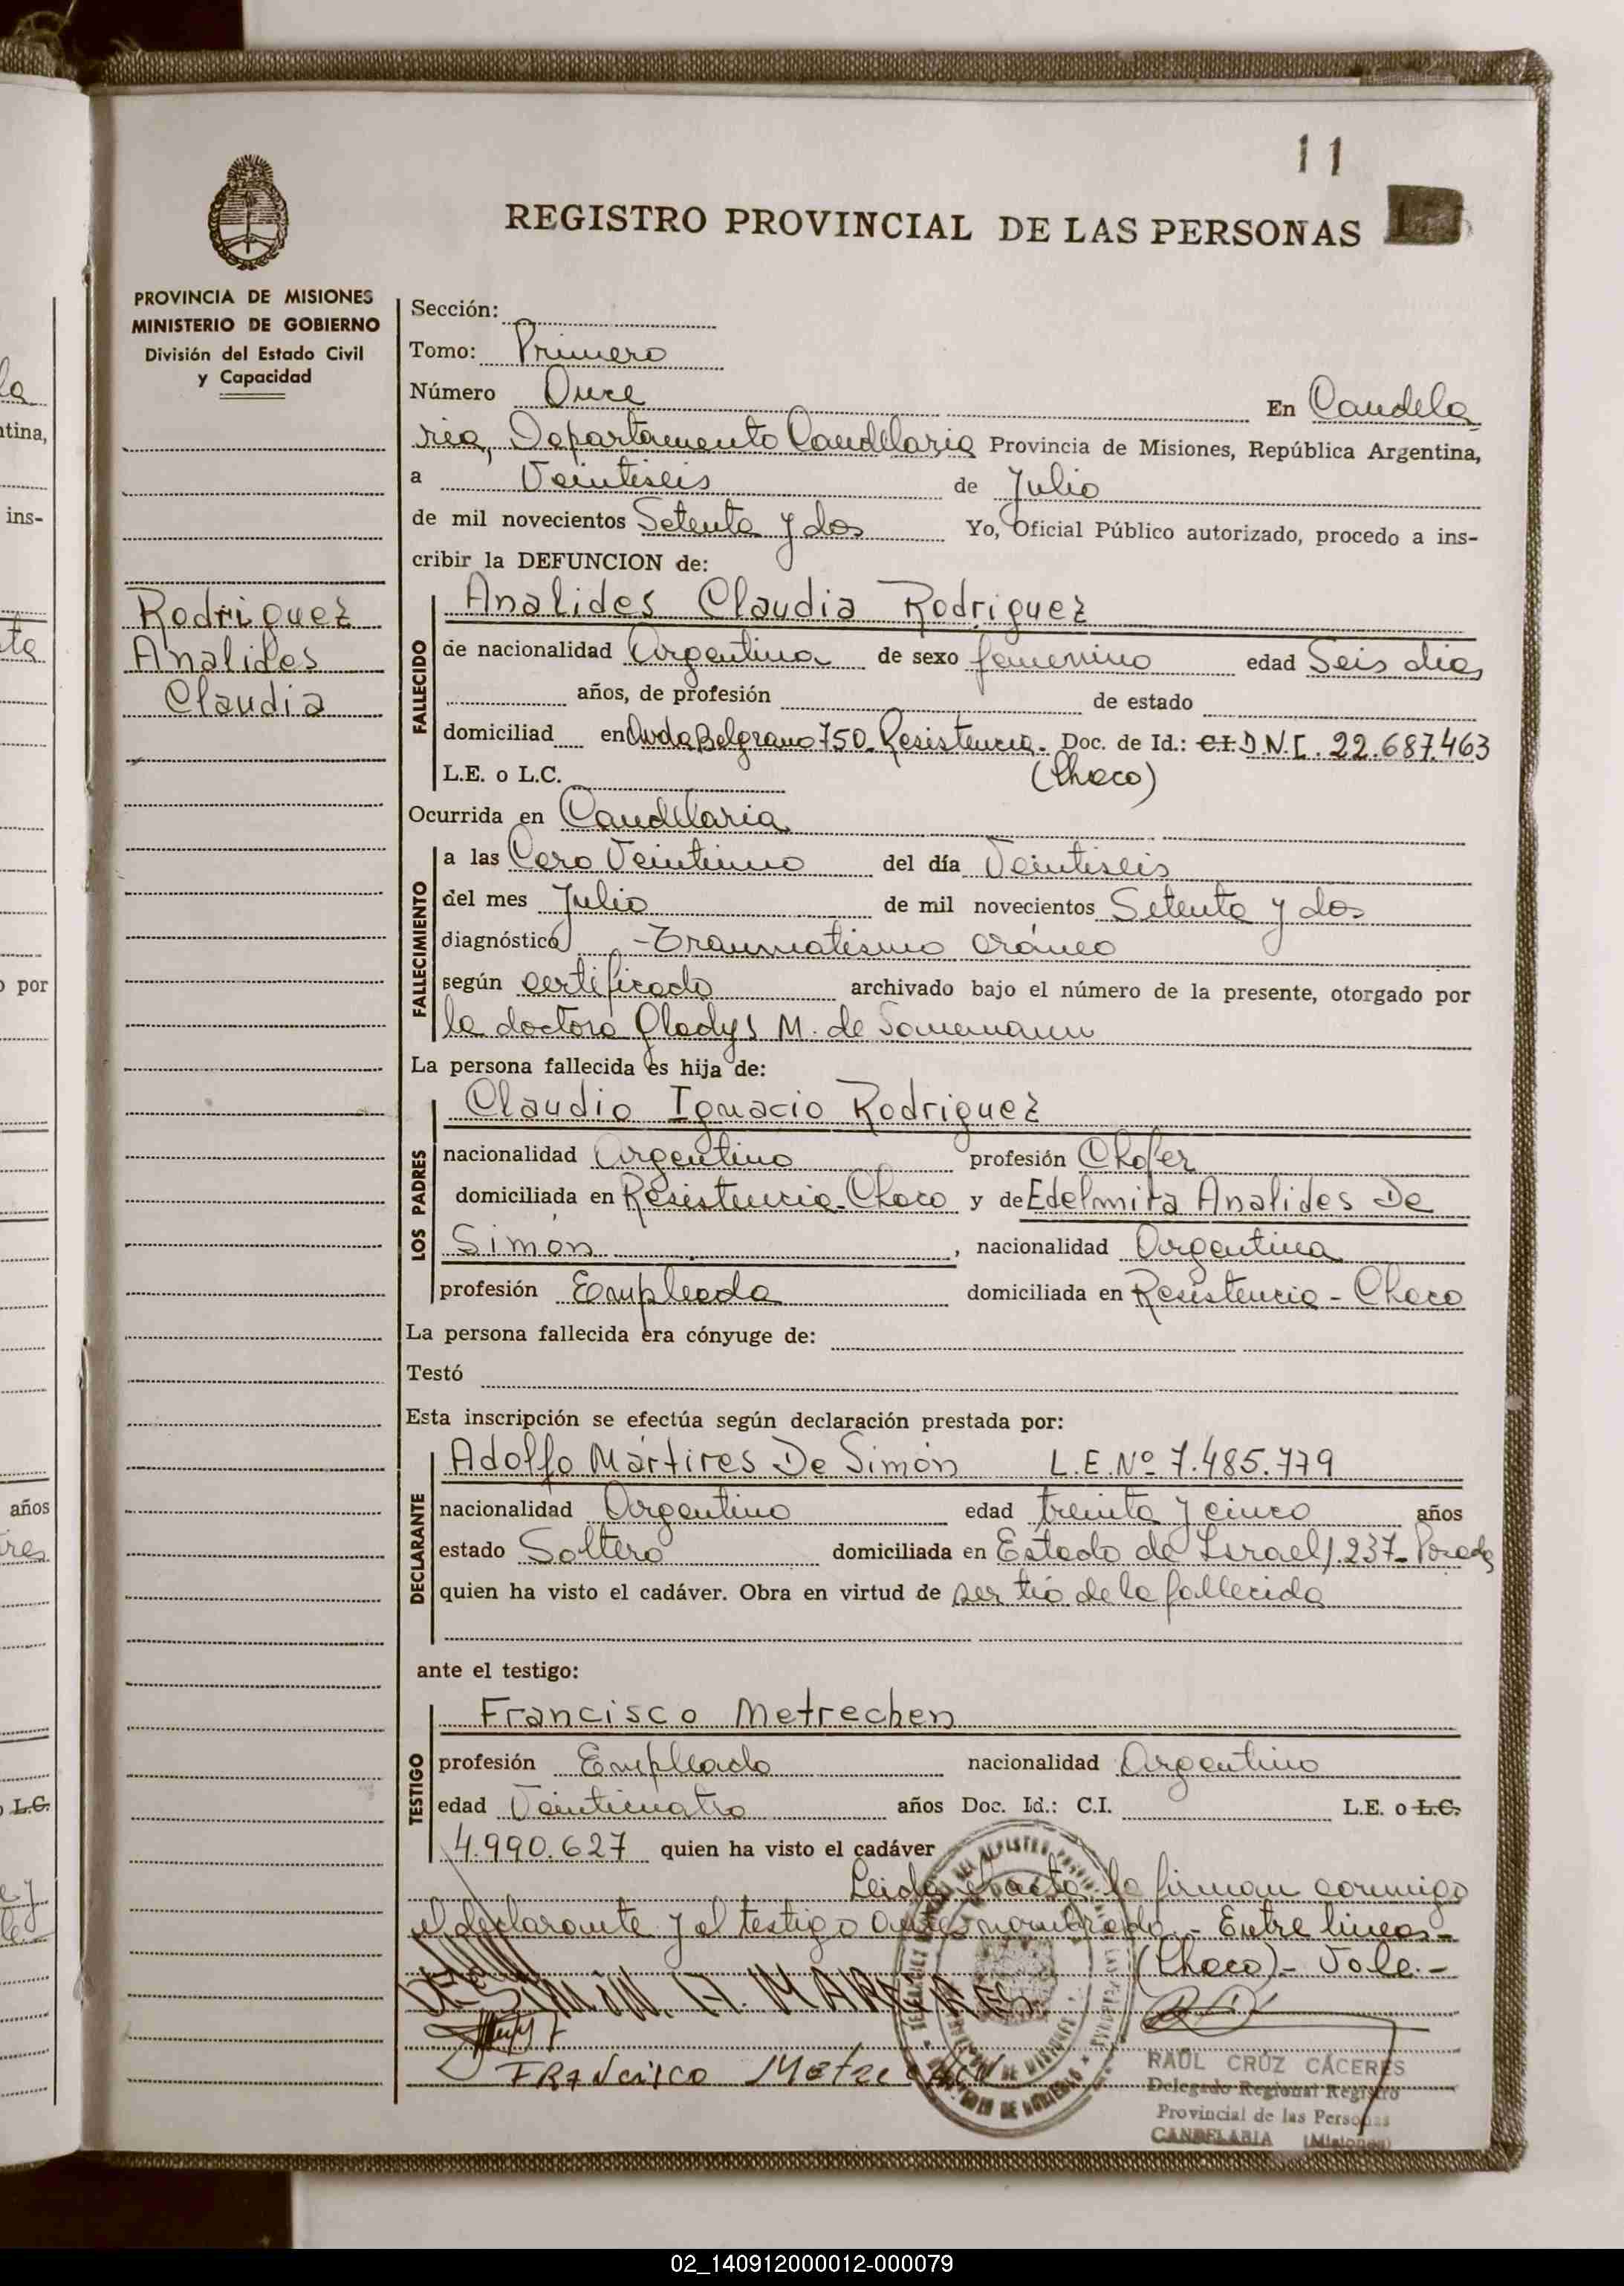 11
REGISTRO PROVINCIAL DE LAS PERSONAS
PROVINCIA DE MISIONES
MINISTERIO DE GOBIERNO
División del Estado Civil
y Capacidad
Rodriguez
Analides
Claudia
Sección:
Tomo: Primero
Número Once En Candela
ria, Departamento Candelaria Provincia de Misiones, República Argentina,
a Veintiseis de Julio
de mil novecientos Setenta y dos Yo, Oficial Público autorizado, procedo a ins-
cribir la DEFUNCION de:
FALLECIDO
Analides Claudia Rodriguez
de nacionalidad Argentina de sexo femenino edad Seis dias
años, de profesión de estado
domiciliad en Avda Belgrano 750 - Resistencia - Doc. de Id.: C.I. D.N.I. 22.687.463
L.E. o L.C. (Chaco)
Ocurrida en Candelaria
FALLECIMIENTO
a las Cero Veintiuno del día Veintiseis
del mes Julio de mil novecientos Setenta y dos
diagnóstico - Traumatismo cráneo
según certificado archivado bajo el número de la presente, otorgado por
la doctora Gladys M. de
La persona fallecida es hija de:
LOS PADRES
Claudio Ignacio Rodriguez
nacionalidad Argentino profesión Chofer
domiciliada en Resistencia - Chaco y de Edelmira Analides De
Simón, nacionalidad Argentina
profesión Empleada domiciliada en Resistencia - Chaco
La persona fallecida era cónyuge de:
Testó
Esta inscripción se efectúa según declaración prestada por:
DECLARANTE
Adolfo Mártires De Simón L.E. Nº 7.485.779
nacionalidad Argentino edad treinta y cinco años
estado Soltero domiciliada en Estado de Israel 1.237 - Posadas
quien ha visto el cadáver. Obra en virtud de ser tío de la fallecida
ante el testigo:
TESTIGO
Francisco Metrechen
profesión Empleado nacionalidad Argentino
edad Veinticuatro años Doc. Id.: C.I. L.E. o L.C.
4.990.627 quien ha visto el cadáver
Leida el acta, la firman conmigo
el declarante y el testigo antes nombrado. - Entre lineas -
(Chaco) - Vale. -
DE SIMÓN, A. MARTIRES
FRANCISCO Metrechen
RAUL CRUZ CACERES
Delegado Regional Registro
Provincial de las Personas
CANDELARIA (Misiones)
02_140912000012-000079